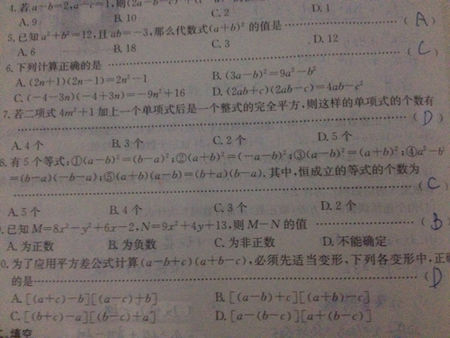 4.若a-b=2,a-c=1,则(2a-b-c)²+(
A. 9 B. 10 C. 2 D. 1
5.已知a²+b²=12,且ab=-3,那么代数式(a+b)²的值是 (A)
A. 6 B. 18 C. 3 D. 12
6.下列计算正确的是 (C)
A. (2n+1)(2n-1)=2n²-1 B. (3a-b)²=9a²-b²
C. (-4-3n)(-4+3n)=-9n²+16 D. (2ab+c)(2ab-c)=4ab-c²
7.若二项式4m²+1加上一个单项式后是一个整式的完全平方,则这样的单项式的个数有
(D)
A. 4个 B. 3个 C. 2个 D. 5个
8.有5个等式:①(a-b)²=(b-a)²;②(a+b)²=(-a-b)²;③(a-b)²=(a+b)²;④a²-b²
=(b-a)(-b-a);⑤(a+b)(a-b)=(b+a)(b-a).其中,恒成立的等式的个数为
(C)
A. 5个 B. 4个 C. 3个 D. 2个
.已知M=8x²-y²+6x-2,N=9x²+4y+13,则M-N的值 (B)
A.为正数 B.为负数 C.为非正数 D.不能确定
0.为了应用平方差公式计算(a-b+c)(a+b-c),必须先适当变形,下列各变形中,正确
的是 (D)
A. [(a+c)-b][(a-c)+b] B. [(a-b)+c][(a+b)-c]
C. [(b+c)-a][(b-c)+a] D. [a-(b-c)][a+(b-c)]
二、填空